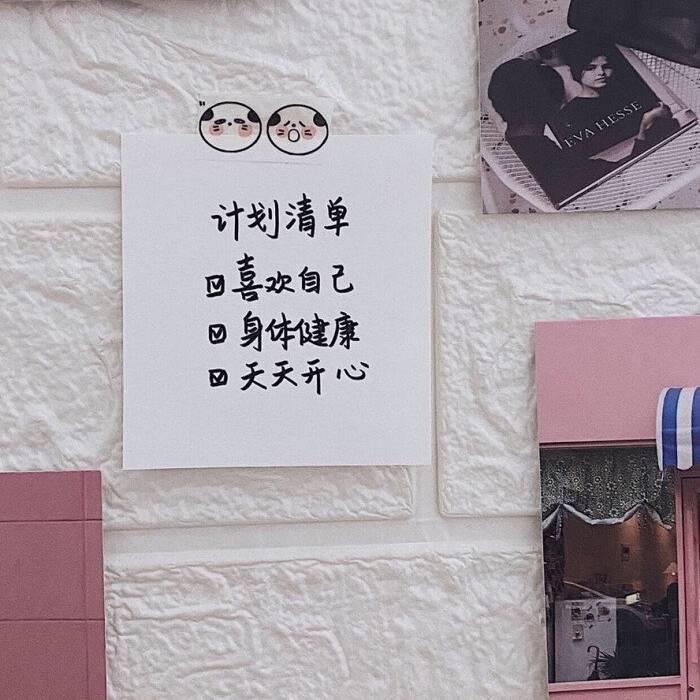 计划清单
☑喜欢自己
☑身体健康
☑天天开心
EVA HESSE